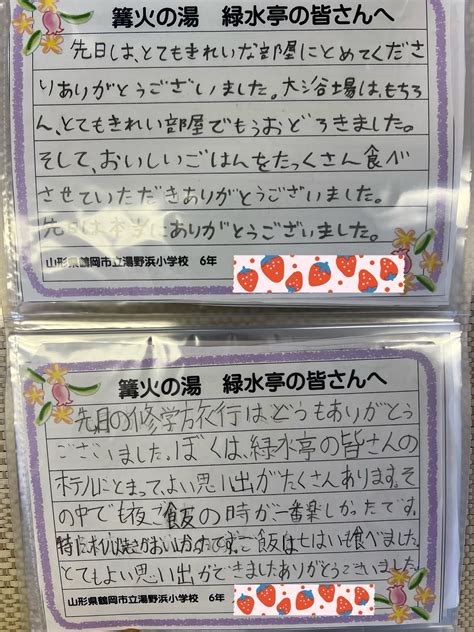 篝火の湯 緑水亭の皆さんへ
先日は、とてもきれいな部屋にとめてくださ
りありがとうございました。大浴場は、もちろ
ん、とてもきれい部屋でもうおどろきました。
そして、おいしいごはんをたっくさん食べ
させていただきありがとうございました。
先日は本当にありがとうございました。
山形県鶴岡市立湯野浜小学校 6年
篝火の湯 緑水亭の皆さんへ
先月の修学方旅行は、どうもありがとう
ございました。ぼくは、緑水亭の皆さんの
ホテルにとまって、よい思い出がたくさんあります。そ
の中でも夜ご飯の時が一番楽しかったです。
特に おいしかったです。ご飯は七はいも食べました。
とてもよい思い出ができましたありがとうございました
山形県鶴岡市立湯野浜小学校 6年